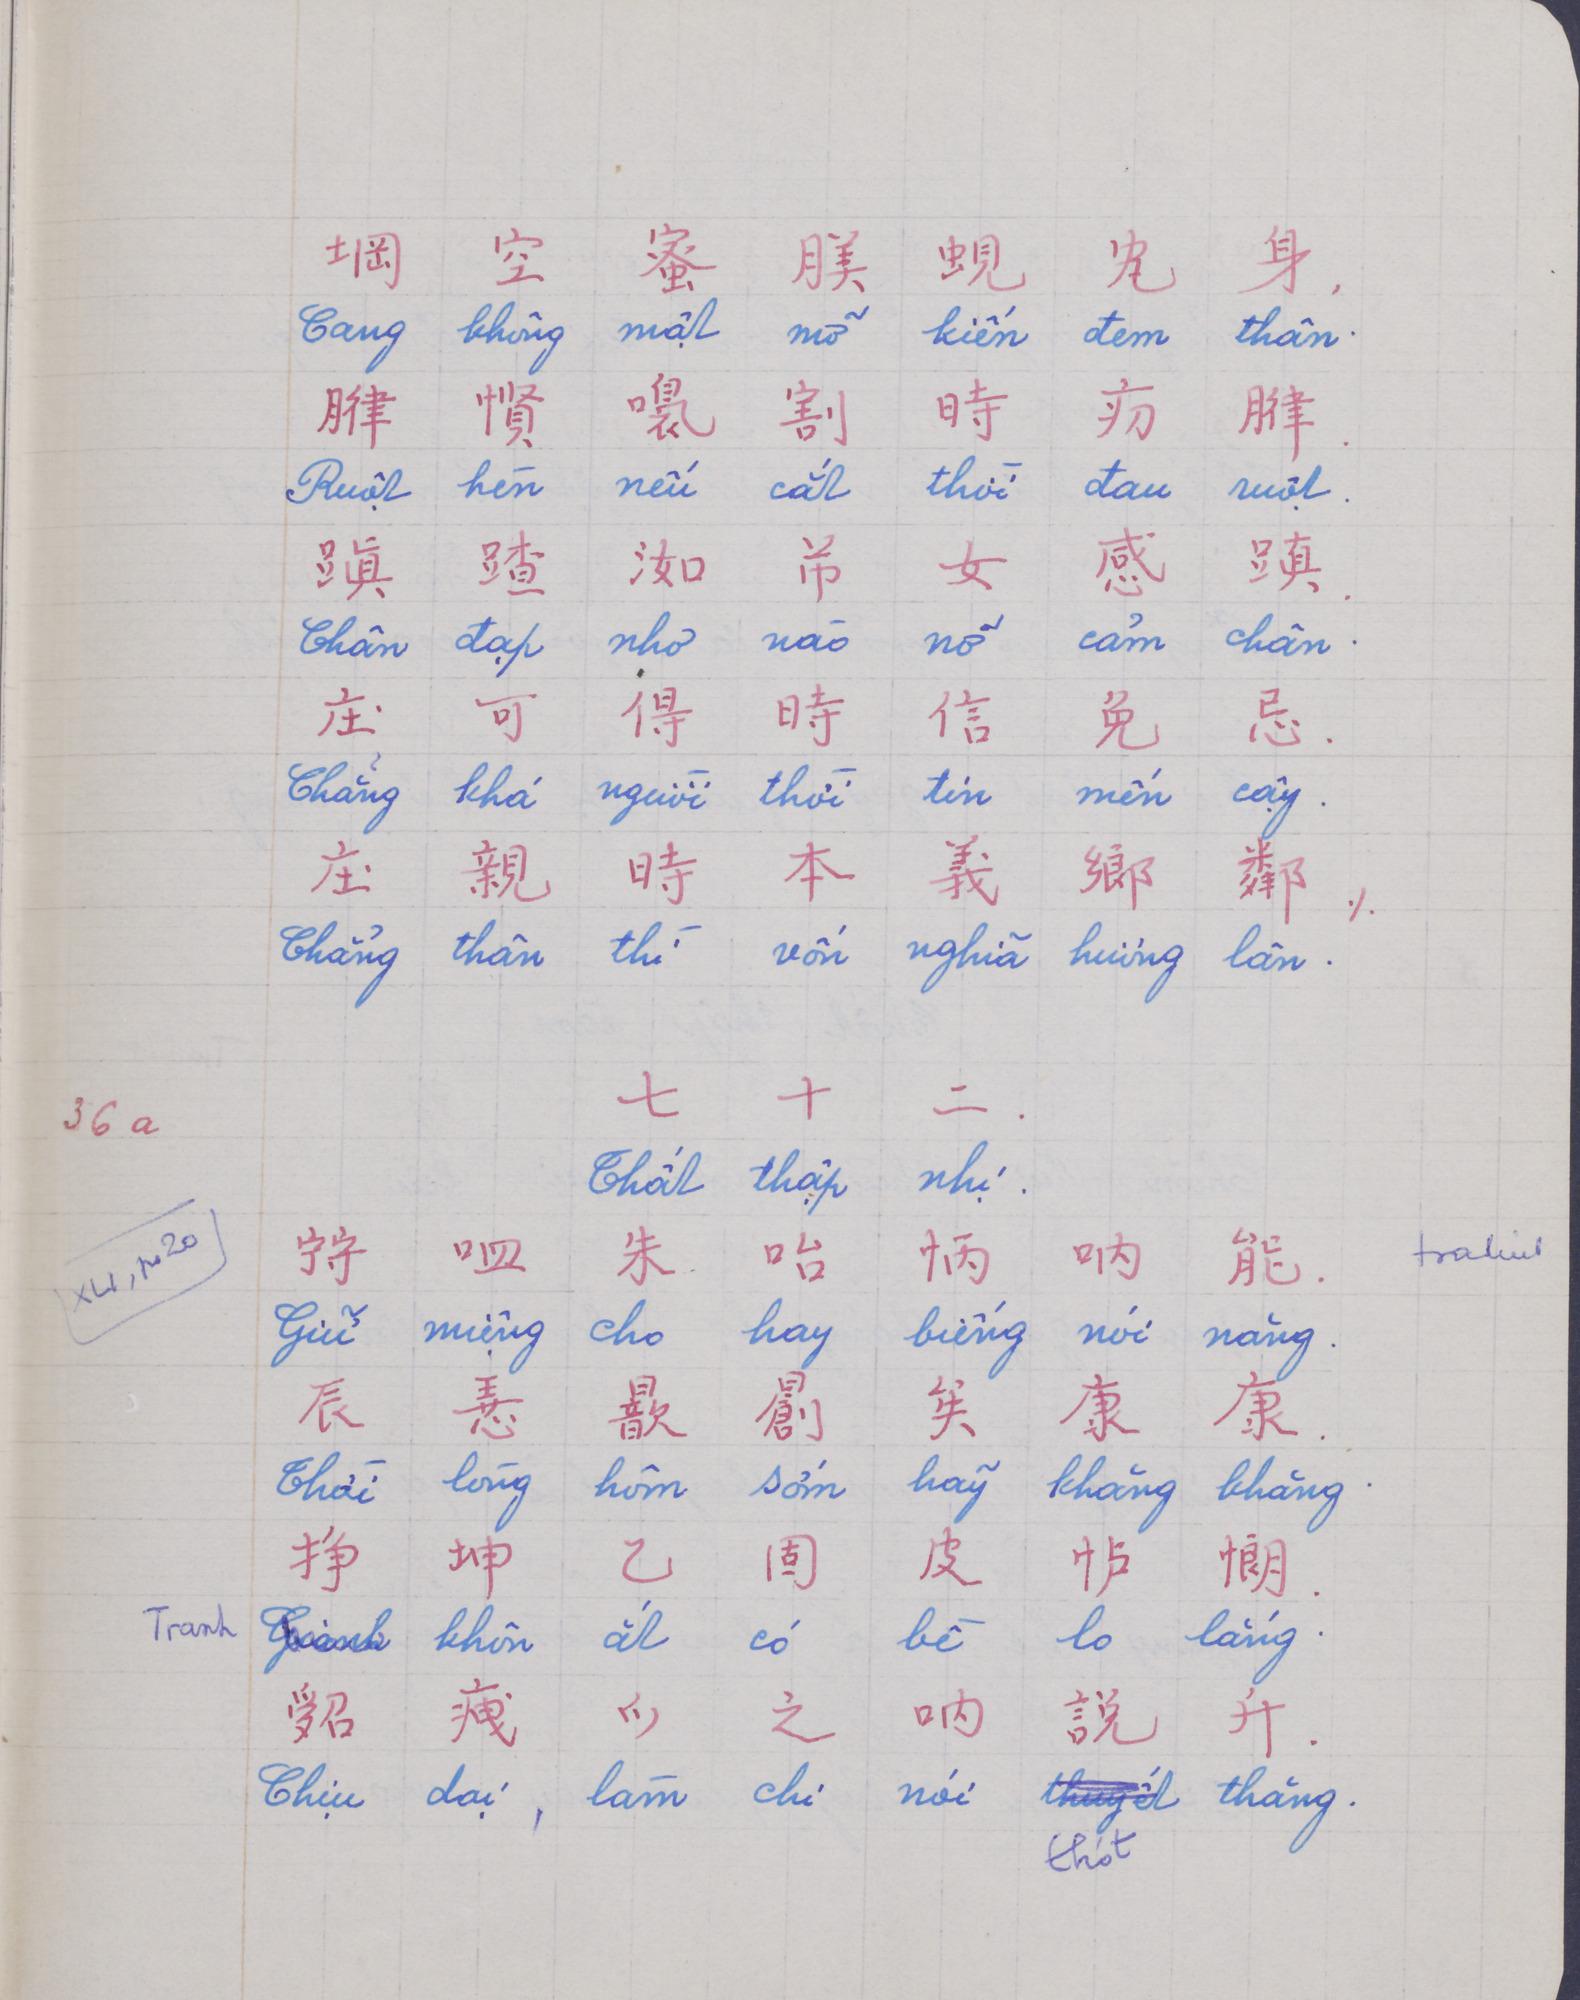 堈 空 蜜 䐁 蜆 㐌 身.
Cang không mật mỡ kiến đem thân.
𦛌 惯 喂 割 時 疠 𦛌.
Ruột hèn nếu cắt thời đau ruột.
蹎 踏 洳 芇 女 感 蹎.
Chân đạp nhơ nào nỡ cảm chân.
庄 可 得 時 信 免 忌.
Chẳng khá người thời tín mến cậy.
庄 親 時 本 義 鄉 鄰 ٪.
Chẳng thân thì vốn nghĩa hương lân.
36 a
七 十 二.
Thất thập nhị.
XLI, No 20
𡨹 㗂 朱 咍 怲 吶 能.
Giữ miệng cho hay biếng nói năng.
辰 𢚸 歆 𠝂 矣 康 康.
Thời lòng hôm sớm hãy khăng khăng.
掙 坤 乙 固 皮 怗 㦃.
Tranh
khôn ắt có bề lo lắng.
𠹾 𤵺 𫜵 之 吶 説 升.
Chịu dại, làm chi nói thuyết thăng.
thốt